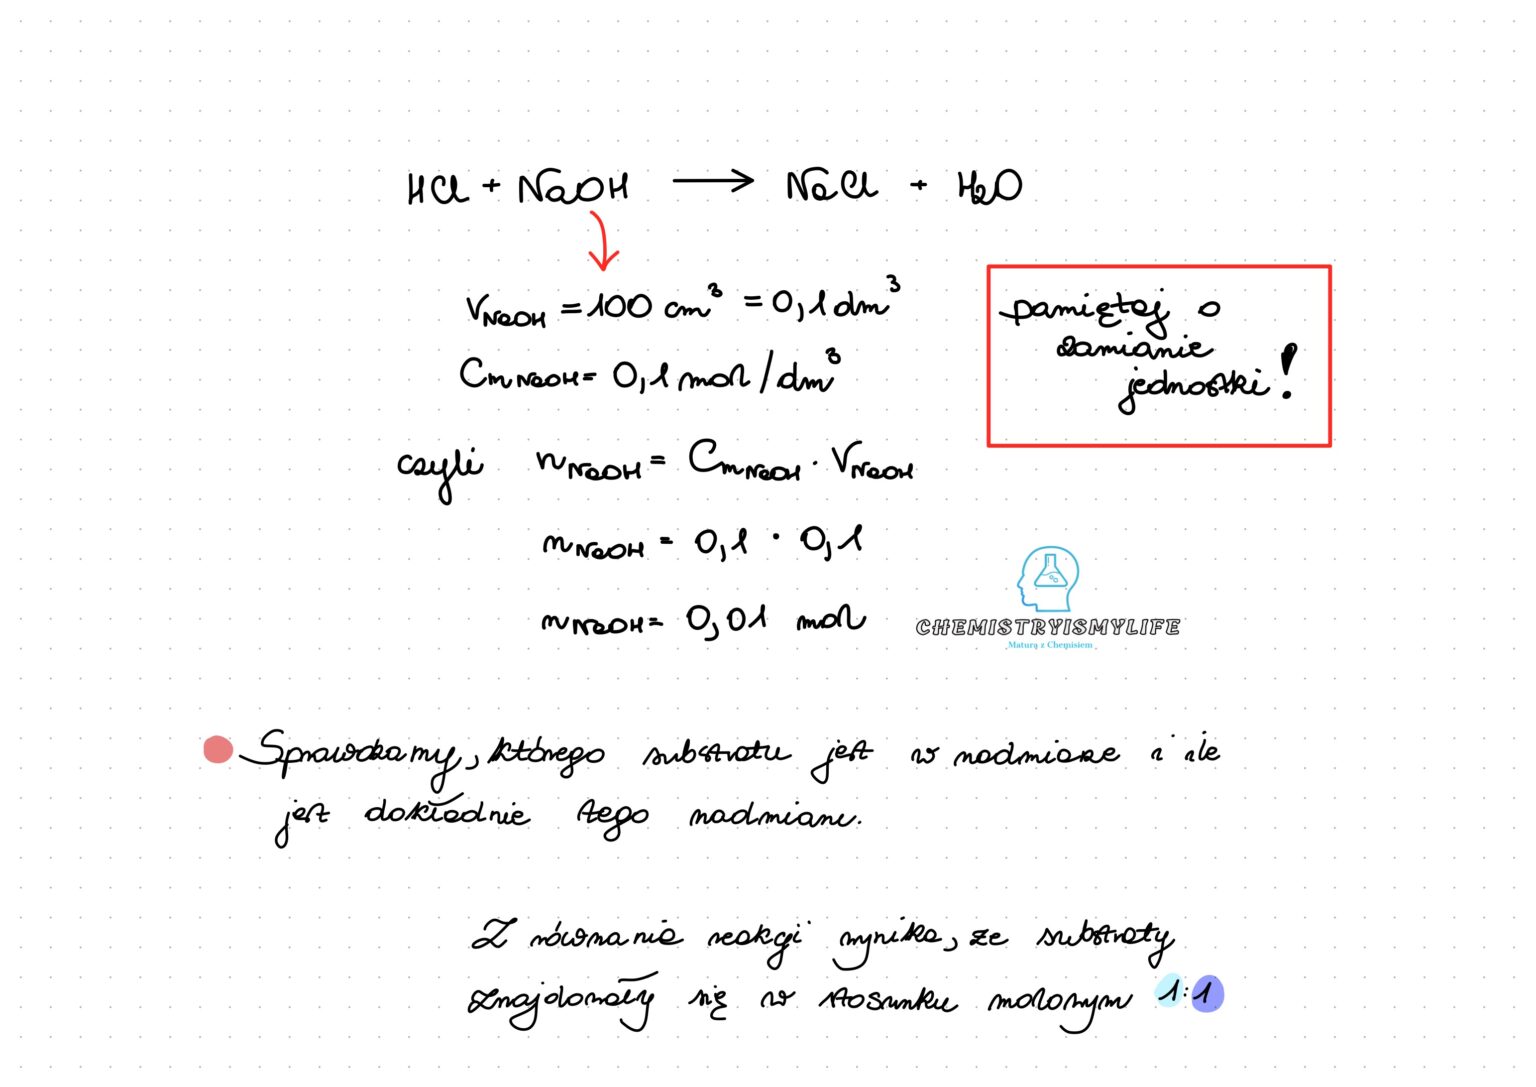 HCl + NaOH → NaCl + H₂O
V_NaOH = 100 cm³ = 0,1 dm³
Cm NaOH = 0,1 mol/dm³
pamiętaj o
zamianie
jednostki!
czyli n_NaOH = Cm_NaOH · V_NaOH
n_NaOH = 0,1 · 0,1
n_NaOH = 0,01 mol
CHEMISTRYISMYLIFE
Matura z Chemisiem
Sprawdzamy, którego substratu jest w nadmiarze i ile
jest dokładnie tego nadmiaru.
Z równania reakcji wynika, że substraty
znajdowały się w stosunku molowym 1:1